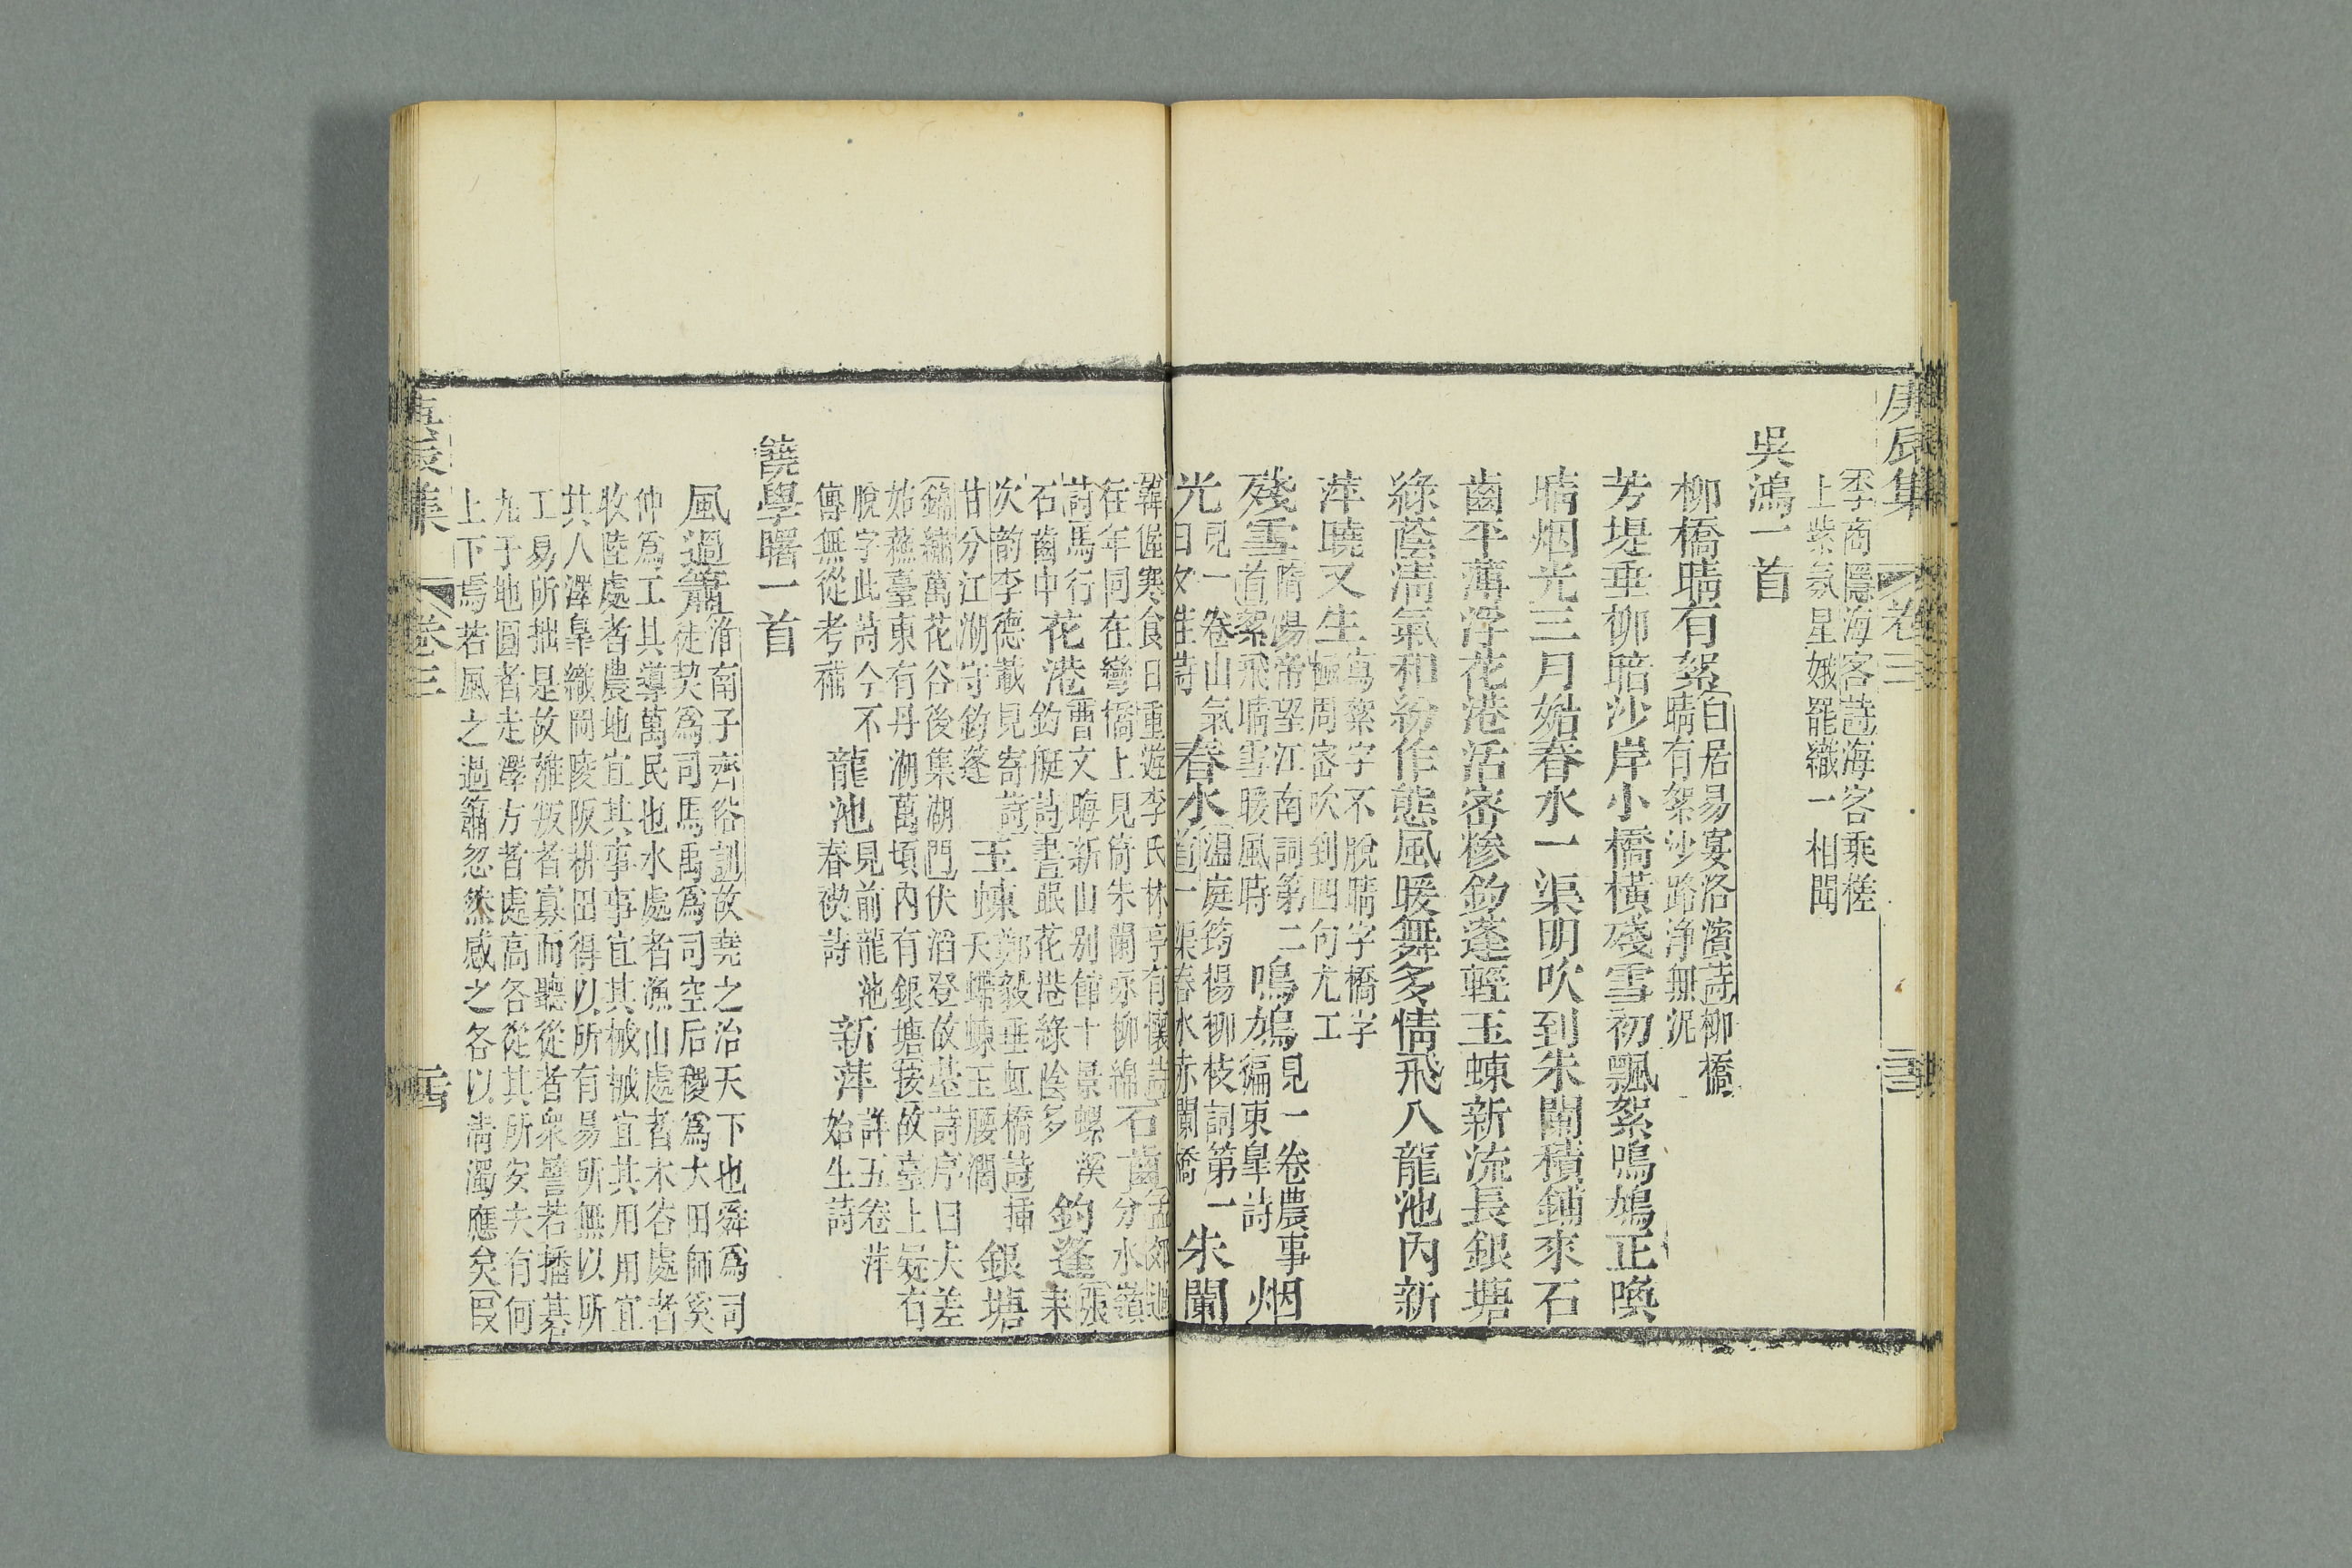 庚辰集 卷三
李商隱海客詩海客乘槎
上紫氛星娥罷織一相聞
吳鴻一首
柳橋晴有絮
白居易宴洛濱詩柳橋
晴有絮沙路淨無泥
芳堤垂柳暗沙岸小橋橫殘雪初飄絮鳴鳩正喚
晴烟光三月始春水一渠明吹到朱闌積鋪來石
齒平薄浮花港活密糝釣蓬輕玉蝀新流長銀塘
綠蔭淸氣和紛作態風暖舞多情飛入龍池內新
萍曉又生
寫絮字不脫晴字橋字
極周密吹到四句尤工
殘雪
隋煬帝望江南詞第二
首絮飛晴雪暖風時
鳴鳩
見一卷農事
徧東皐詩
烟
光
見一卷山氣
日夕佳詩
春水
溫庭筠楊柳枝詞第一
首一渠春水赤闌橋
朱闌
韓偓寒食日重遊李氏林亭有懷詩
往年同在彎橋上見倚朱闌詠柳綿
石齒
孟郊
分水嶺
詩馬行
石齒中
花港
曹文晦新山别館十景螺溪
釣艇詩晝眠花港綠陰多
釣蓬
張耒
次韵李德載見寄詩
甘分江湖守釣蓬
玉蝀
鄭毅垂虹橋詩插
天螮蝀玉腰濶
銀塘
錦繡萬花谷後集湖門伏滔登故臺詩序曰夫差
姑蘇臺東有丹湖萬頃內有銀塘按故臺上疑有
脫字此詩今不
傳無從考補
龍池
見前龍池
春禊詩
新萍
詳五卷萍
始生詩
饒學曙一首
風過簫
淮南子齊俗訓故堯之治天下也舜爲司
徒契爲司馬禹爲司空后稷爲大田師奚
仲爲工其導萬民也水處者漁山處者木谷處者
牧陸處者農地宜其事事宜其械械宜其用用宜
其人澤皐織罔陵阪耕田得以所有易所無以所
工易所拙是故離叛者寡而聽從者衆譬若播棊
丸于地圓者走澤方者處高各從其所安夫有何
上下焉若風之過簫忽然感之各以淸濁應矣
庚辰集 卷三